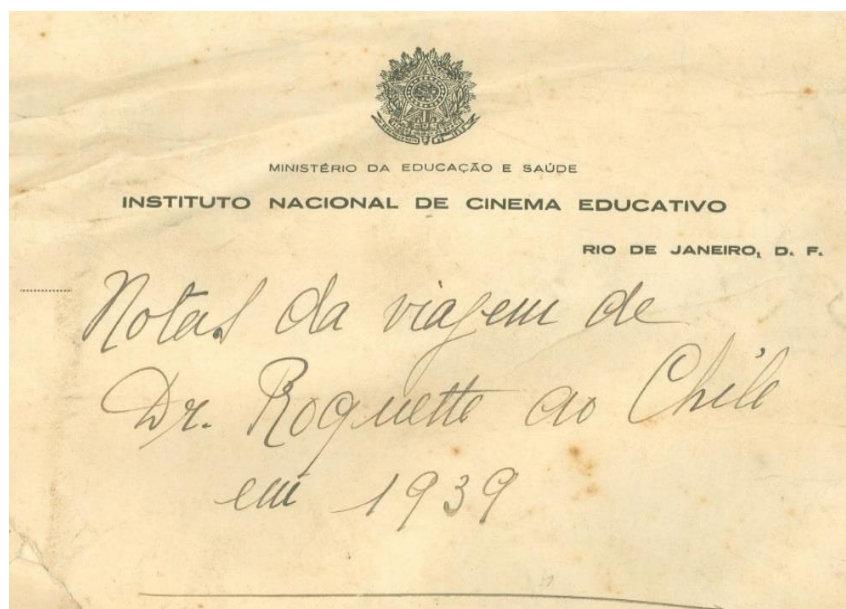 MINISTÉRIO DA EDUCAÇÃO E SAÚDE
INSTITUTO NACIONAL DE CINEMA EDUCATIVO
RIO DE JANEIRO, D. F.
Notas da viagem de
Dr. Roquette ao Chile
em 1939